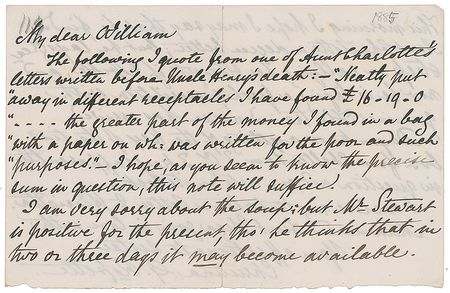 1885
My dear William
The following I quote from one of Aunt Charlotte's
letters written before Uncle Henry's death:— "Neatly put
"away in different receptacles I have found £16-19-0
"- - - - the greater part of the money I found in a bag
"with a paper on wh: was written for the poor and such
"purposes."— I hope, as you seem to know the precise
sum in question, this note will suffice.
I am very sorry about the soup; but Mr Stewart
is positive for the present, tho' he thinks that in
two or three days it may become available.